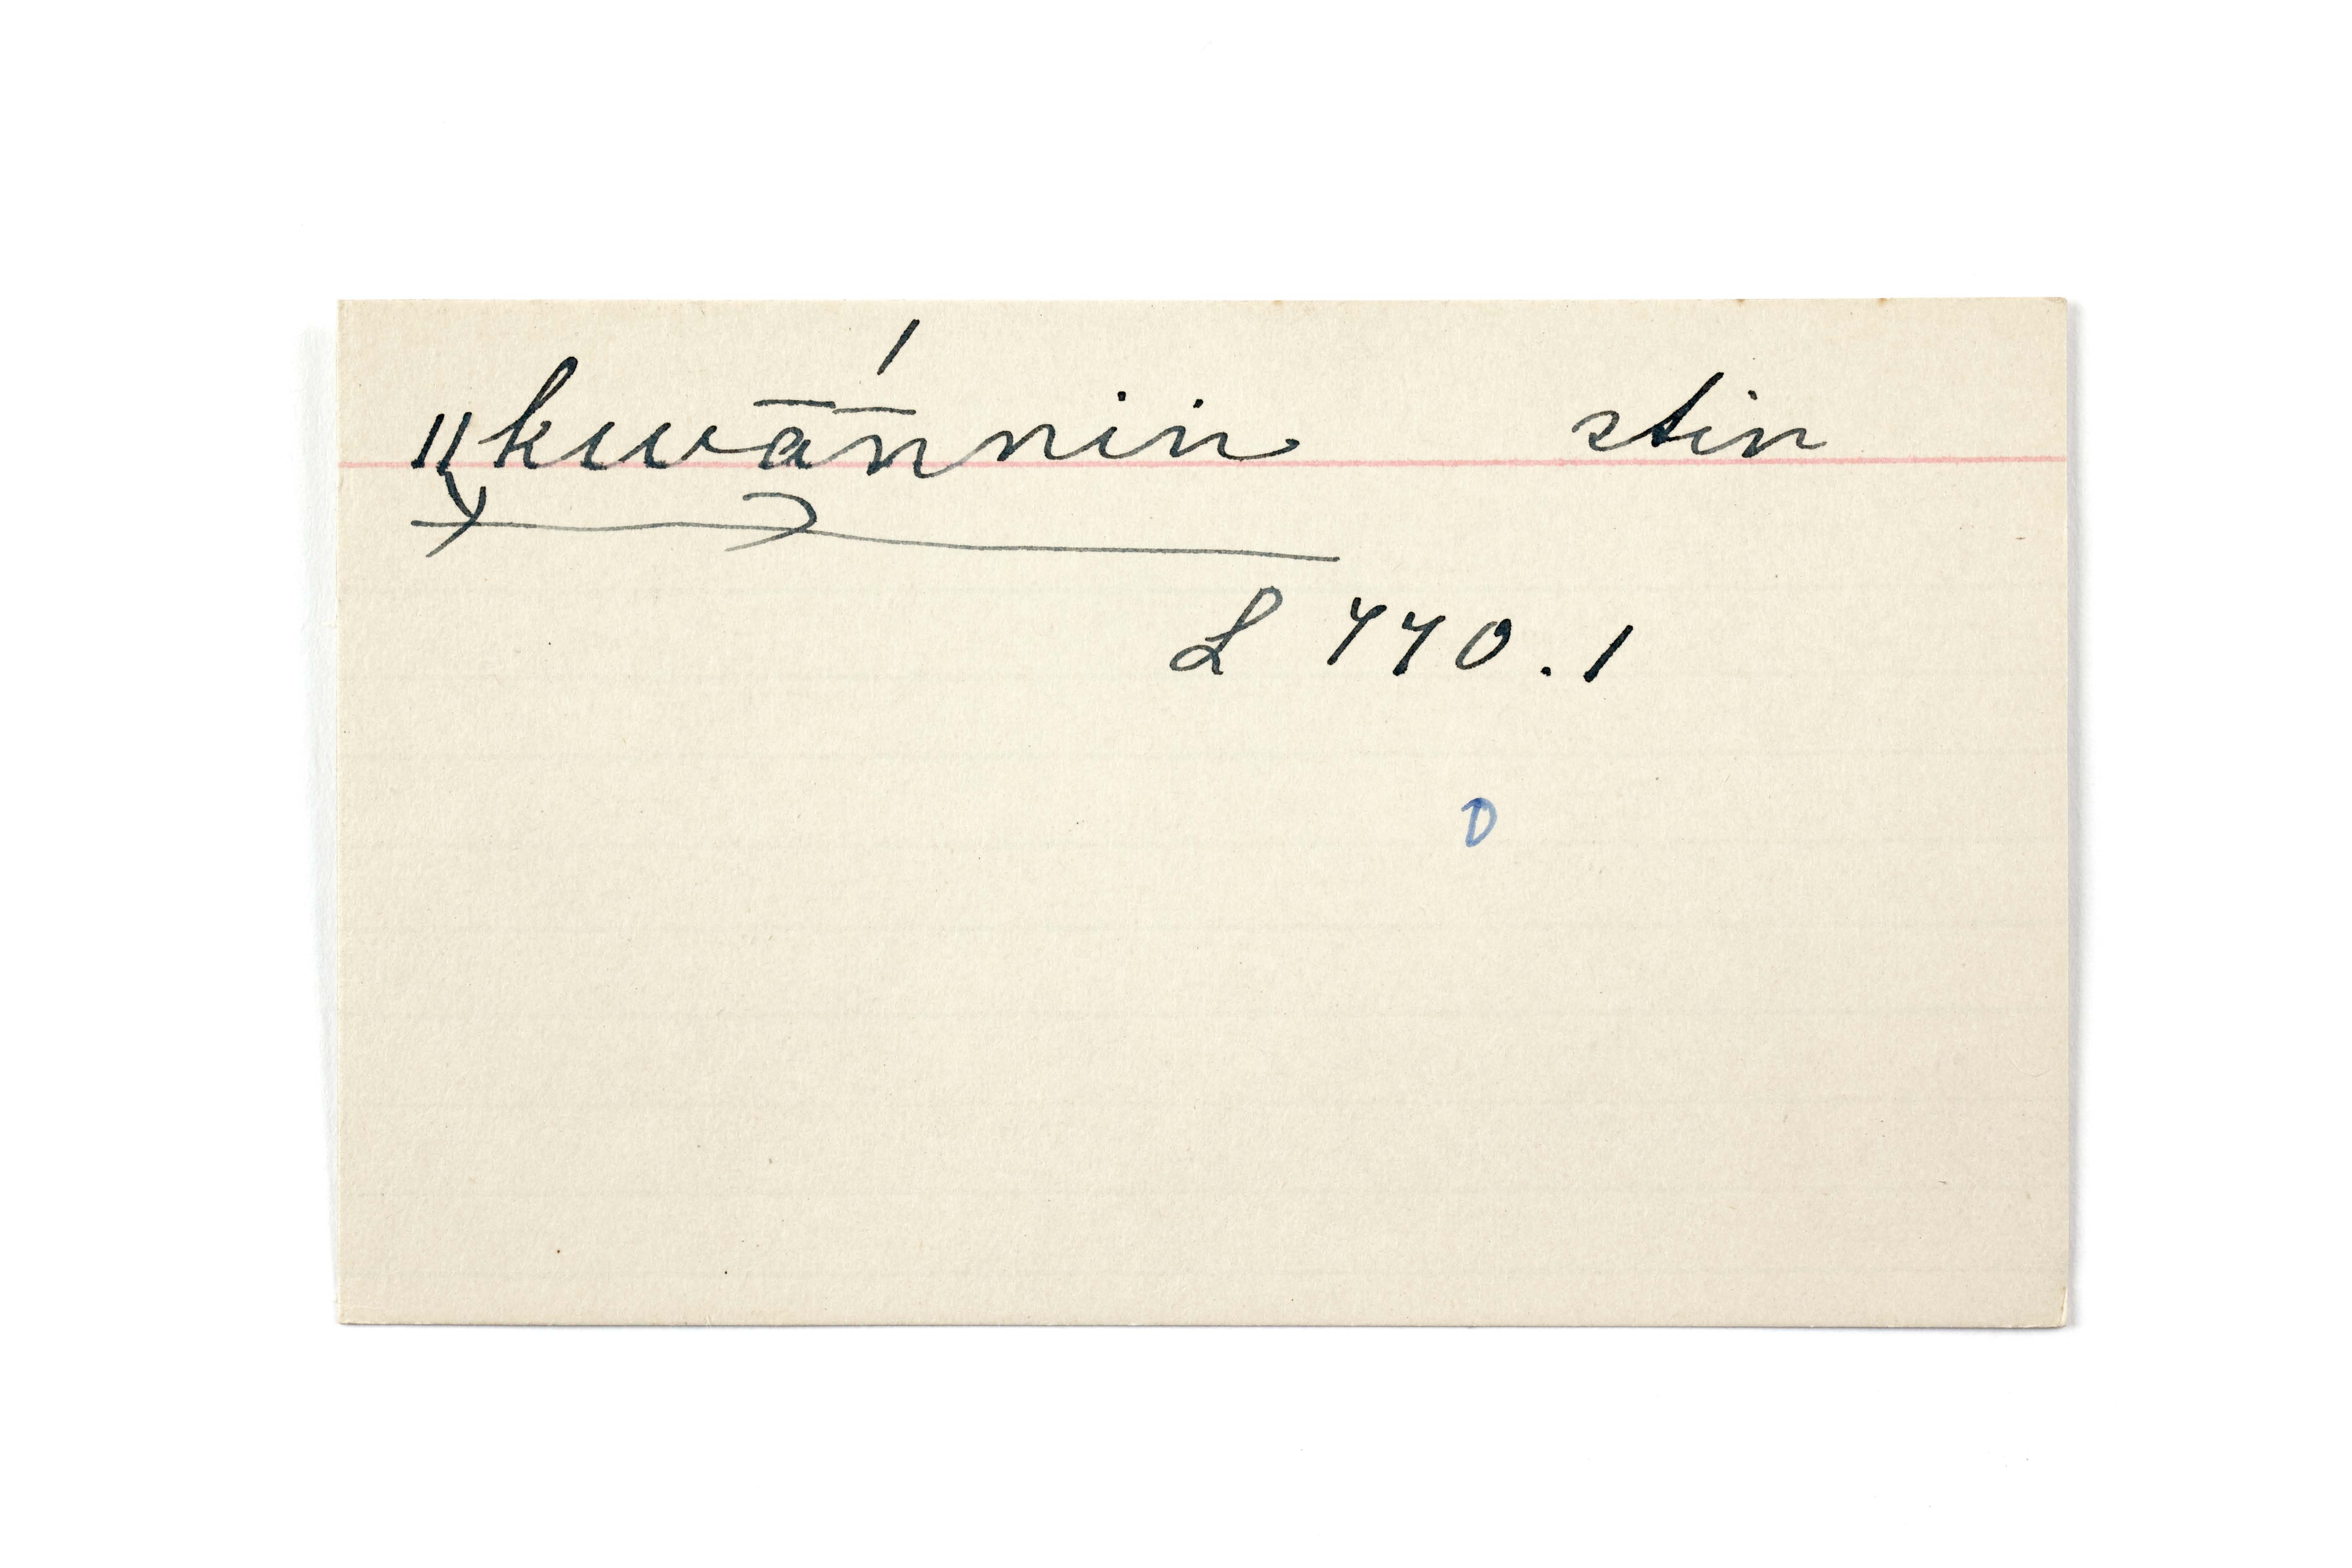 ǁkwā́n̄nin stin
L 770.1
D